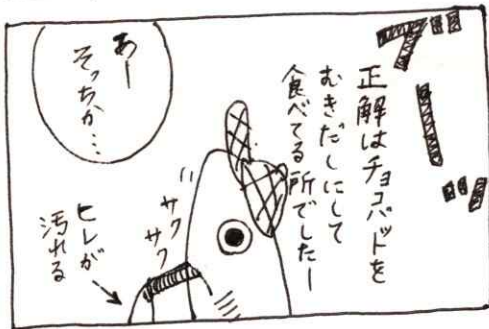 ブーッ
正解はチョコバットを
むきだしにして
食べてる所でしたー
あー
そっちか…
サクサク
ヒレが
汚れる